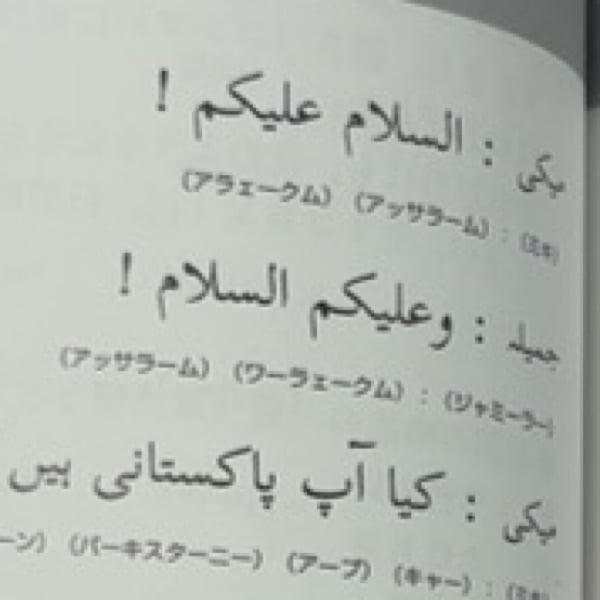 میکی : السلام علیکم !
（アラェークム） （アッサラーム） : （ミキ）
جمیلہ : وعلیکم السلام !
（アッサラーム） （ワーラェークム） : （ジャミーラー）
میکی : کیا آپ پاکستانی ہیں
ーン） （パーキスターニー） （アープ） （キャー） : （ミキ）